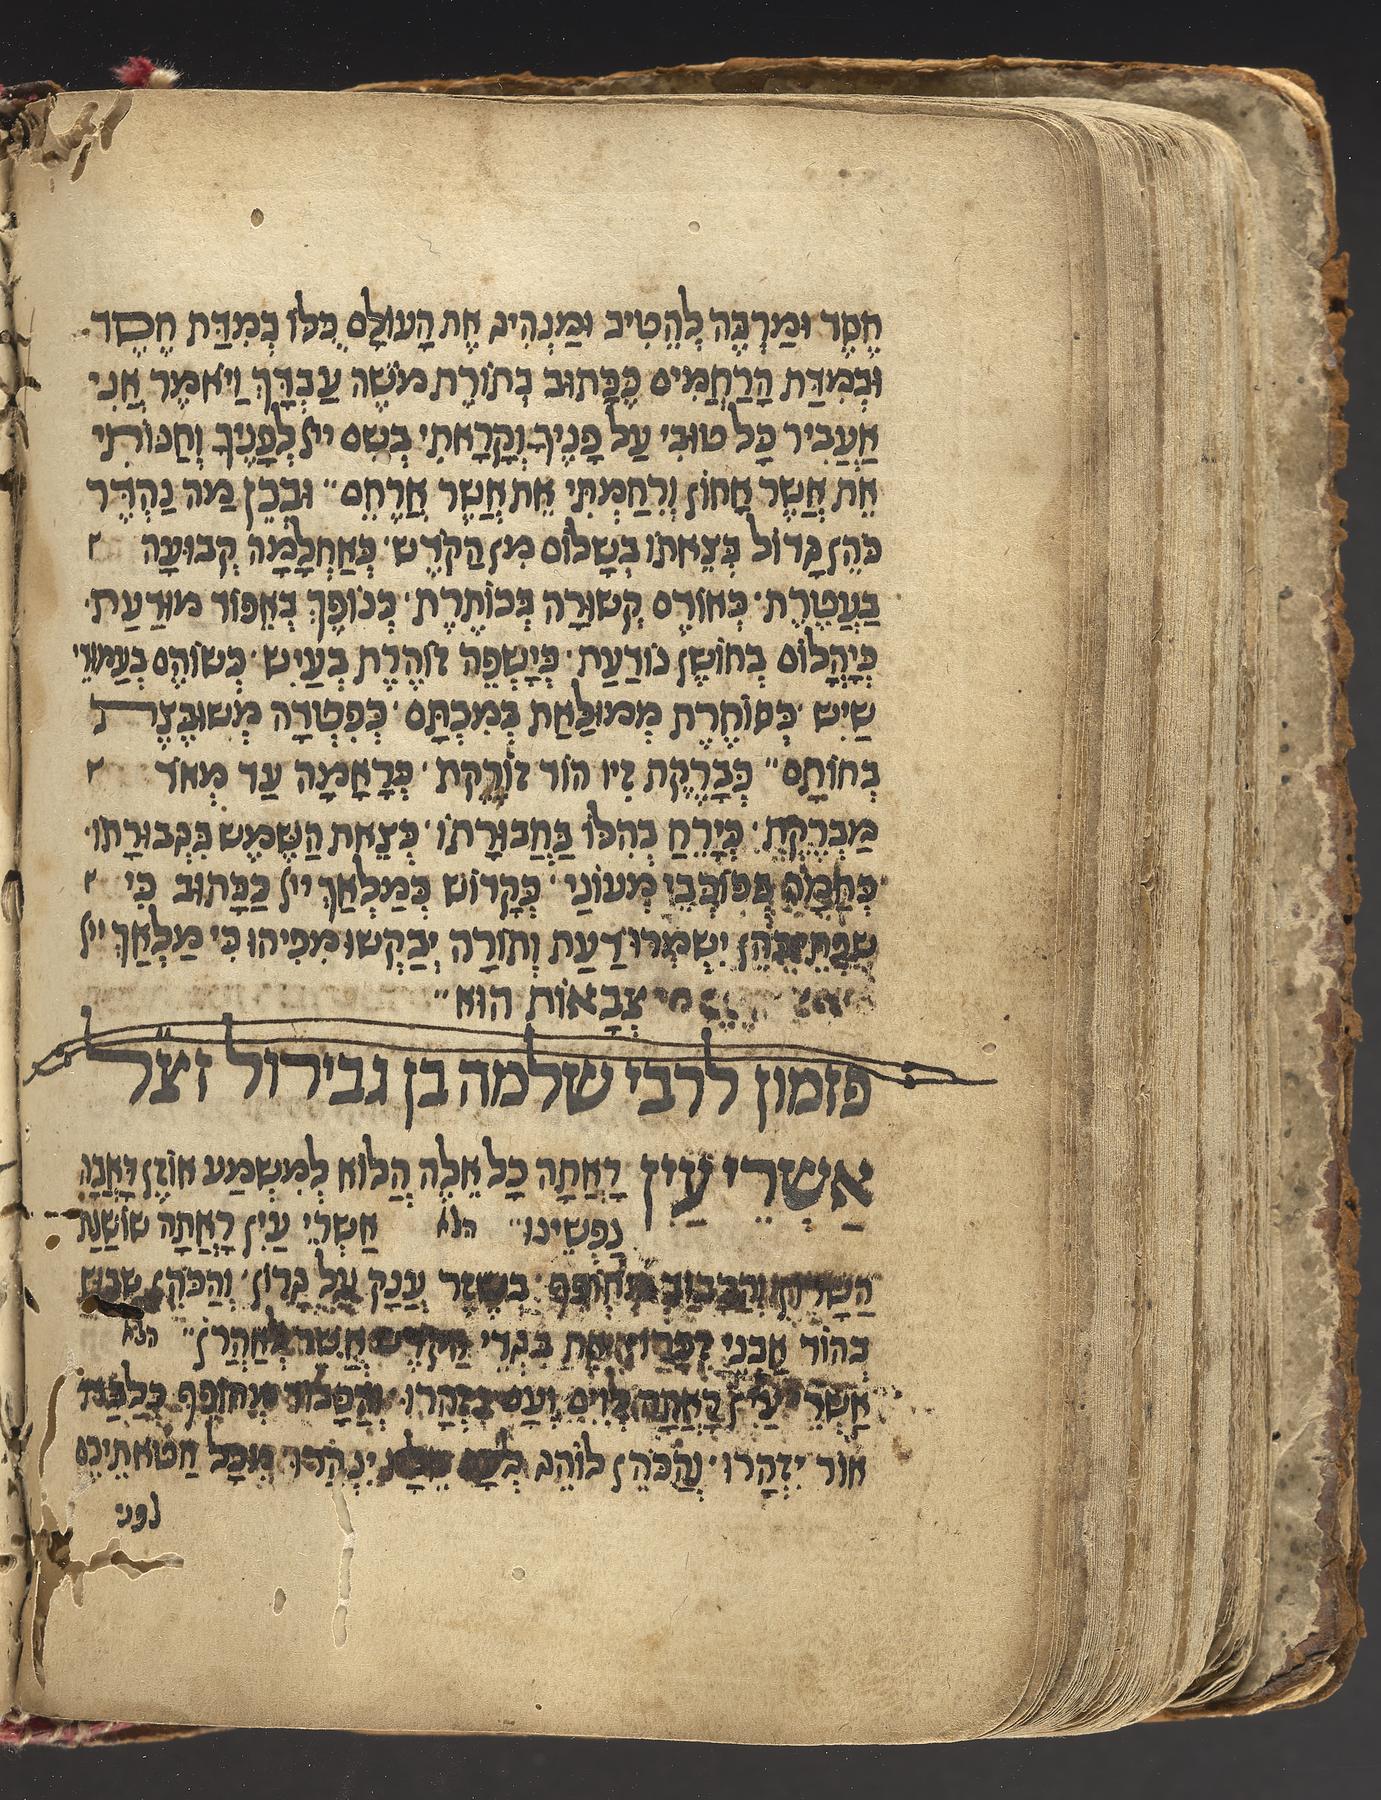 חֶסֶד וּמַרְבֶּה לְהֵטִיב וּמַנְהִיג אֶת הָעוֹלָם כֻּלּוֹ בְּמִדַּת חֶסֶד
וּבְמִדַּת הָרַחֲמִים כַּכָּתוּב בְּתוֹרַת מֹשֶׁה עַבְדָּךְ וַיֹּאמֶר אֲנִי
אַעֲבִיר כָּל טוּבִי עַל פָּנֶיךָ וְקָרָאתִי בְשֵׁם ייי לְפָנֶיךָ וְחַנּוֹתִי
אֵת אֲשֶׁר אָחוֹן וְרִחַמְתִּי אֵת אֲשֶׁר אֲרַחֵם״ וּבְכֵן מַה נֶהְדַּר
כֹּהֵן גָּדוֹל בְּצֵאתוֹ בְשָׁלוֹם מִן הַקֹּדֶשׁ׳ כְּאַחְלָמָה קְבוּעָה
בַּעֲטֶרֶת׳ כְּאוֹדֶם קְשׁוּרָה בְּכוֹתֶרֶת׳ כְּנוֹפֶךְ בְּאֵפוֹד מוּדַעַת׳
כְּיָהֲלוֹם בְּחוֹשֶׁן נוֹדַעַת׳ כְּיָשְׁפֵה זוֹהֶרֶת בְּעַיִשׁ׳ כְּשׁוֹהַם בְּעַמּוּדֵי
שַׁיִשׁ׳ כְּסוֹחֶרֶת מְמוּלַּאַת בְּמִכְתָּם׳ כְּפִטְדָה מְשׁוּבֶּצֶת
בְּחוֹתָם״ כְּבָרֶקֶת זִיו הוֹד זוֹרֶקֶת׳ כְּרָאָמָה עַד מְאֹד
מַבְרֶקֶת׳ כְּיָרֵחַ בְּהִלּוֹ בַּחֲבוּרָתוֹ׳ כְּצֵאת הַשֶּׁמֶשׁ בִּגְבוּרָתוֹ׳
כְּחַמָּה בְּכוֹכְבֵי מְעוֹנַי׳ כְּקָדוֹשׁ כְּמַלְאַךְ ייי כַּכָּתוּב כִּי
שִׂפְתֵי כֹהֵן יִשְׁמְרוּ דַעַת וְתוֹרָה יְבַקְשׁוּ מִפִּיהוּ כִּי מַלְאַךְ ייי
צְבָאוֹת הוּא״
פזמון לרבי שלמה בן גבירול זצ״ל
אַשְׁרֵי עַיִן רָאֲתָה כָל אֵלֶּה הֲלוֹא לְמִשְׁמַע אוֹזֶן דָּאֲבָה
נַפְשֵׁינוּ״ הלא אַשְׁרֵי עַיִן רָאֲתָה שׁוֹשַׁנַּת
הַשָּׁרוֹן בְּשֶׁזֶר עֲנָק עַל גָּרוֹן׳ וְהַכֹּהֵן
בְּהוֹד אַבְנֵי זִכָּרוֹן אֶת בִּגְדֵי הַקֹּדֶשׁ אֲשֶׁר לְאַהֲרֹן״ הלא
אַשְׁרֵי עַיִן רָאֲתָה
אוֹר יִזְהָרוּ׳ וְהַכֹּהֵן לוֹהֵג מִכָּל חַטֹּאתֵיכֶם
לפני